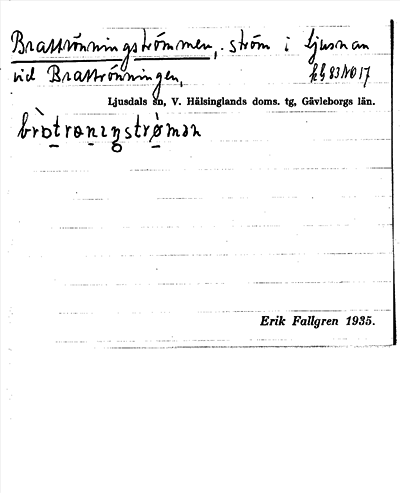 Brattrönningströmmen, ström i Ljusnan
vid Brattrönningen,
Ljusdals sn, V. Hälsinglands doms. tg, Gävleborgs län.
Erik Fallgren 1935.